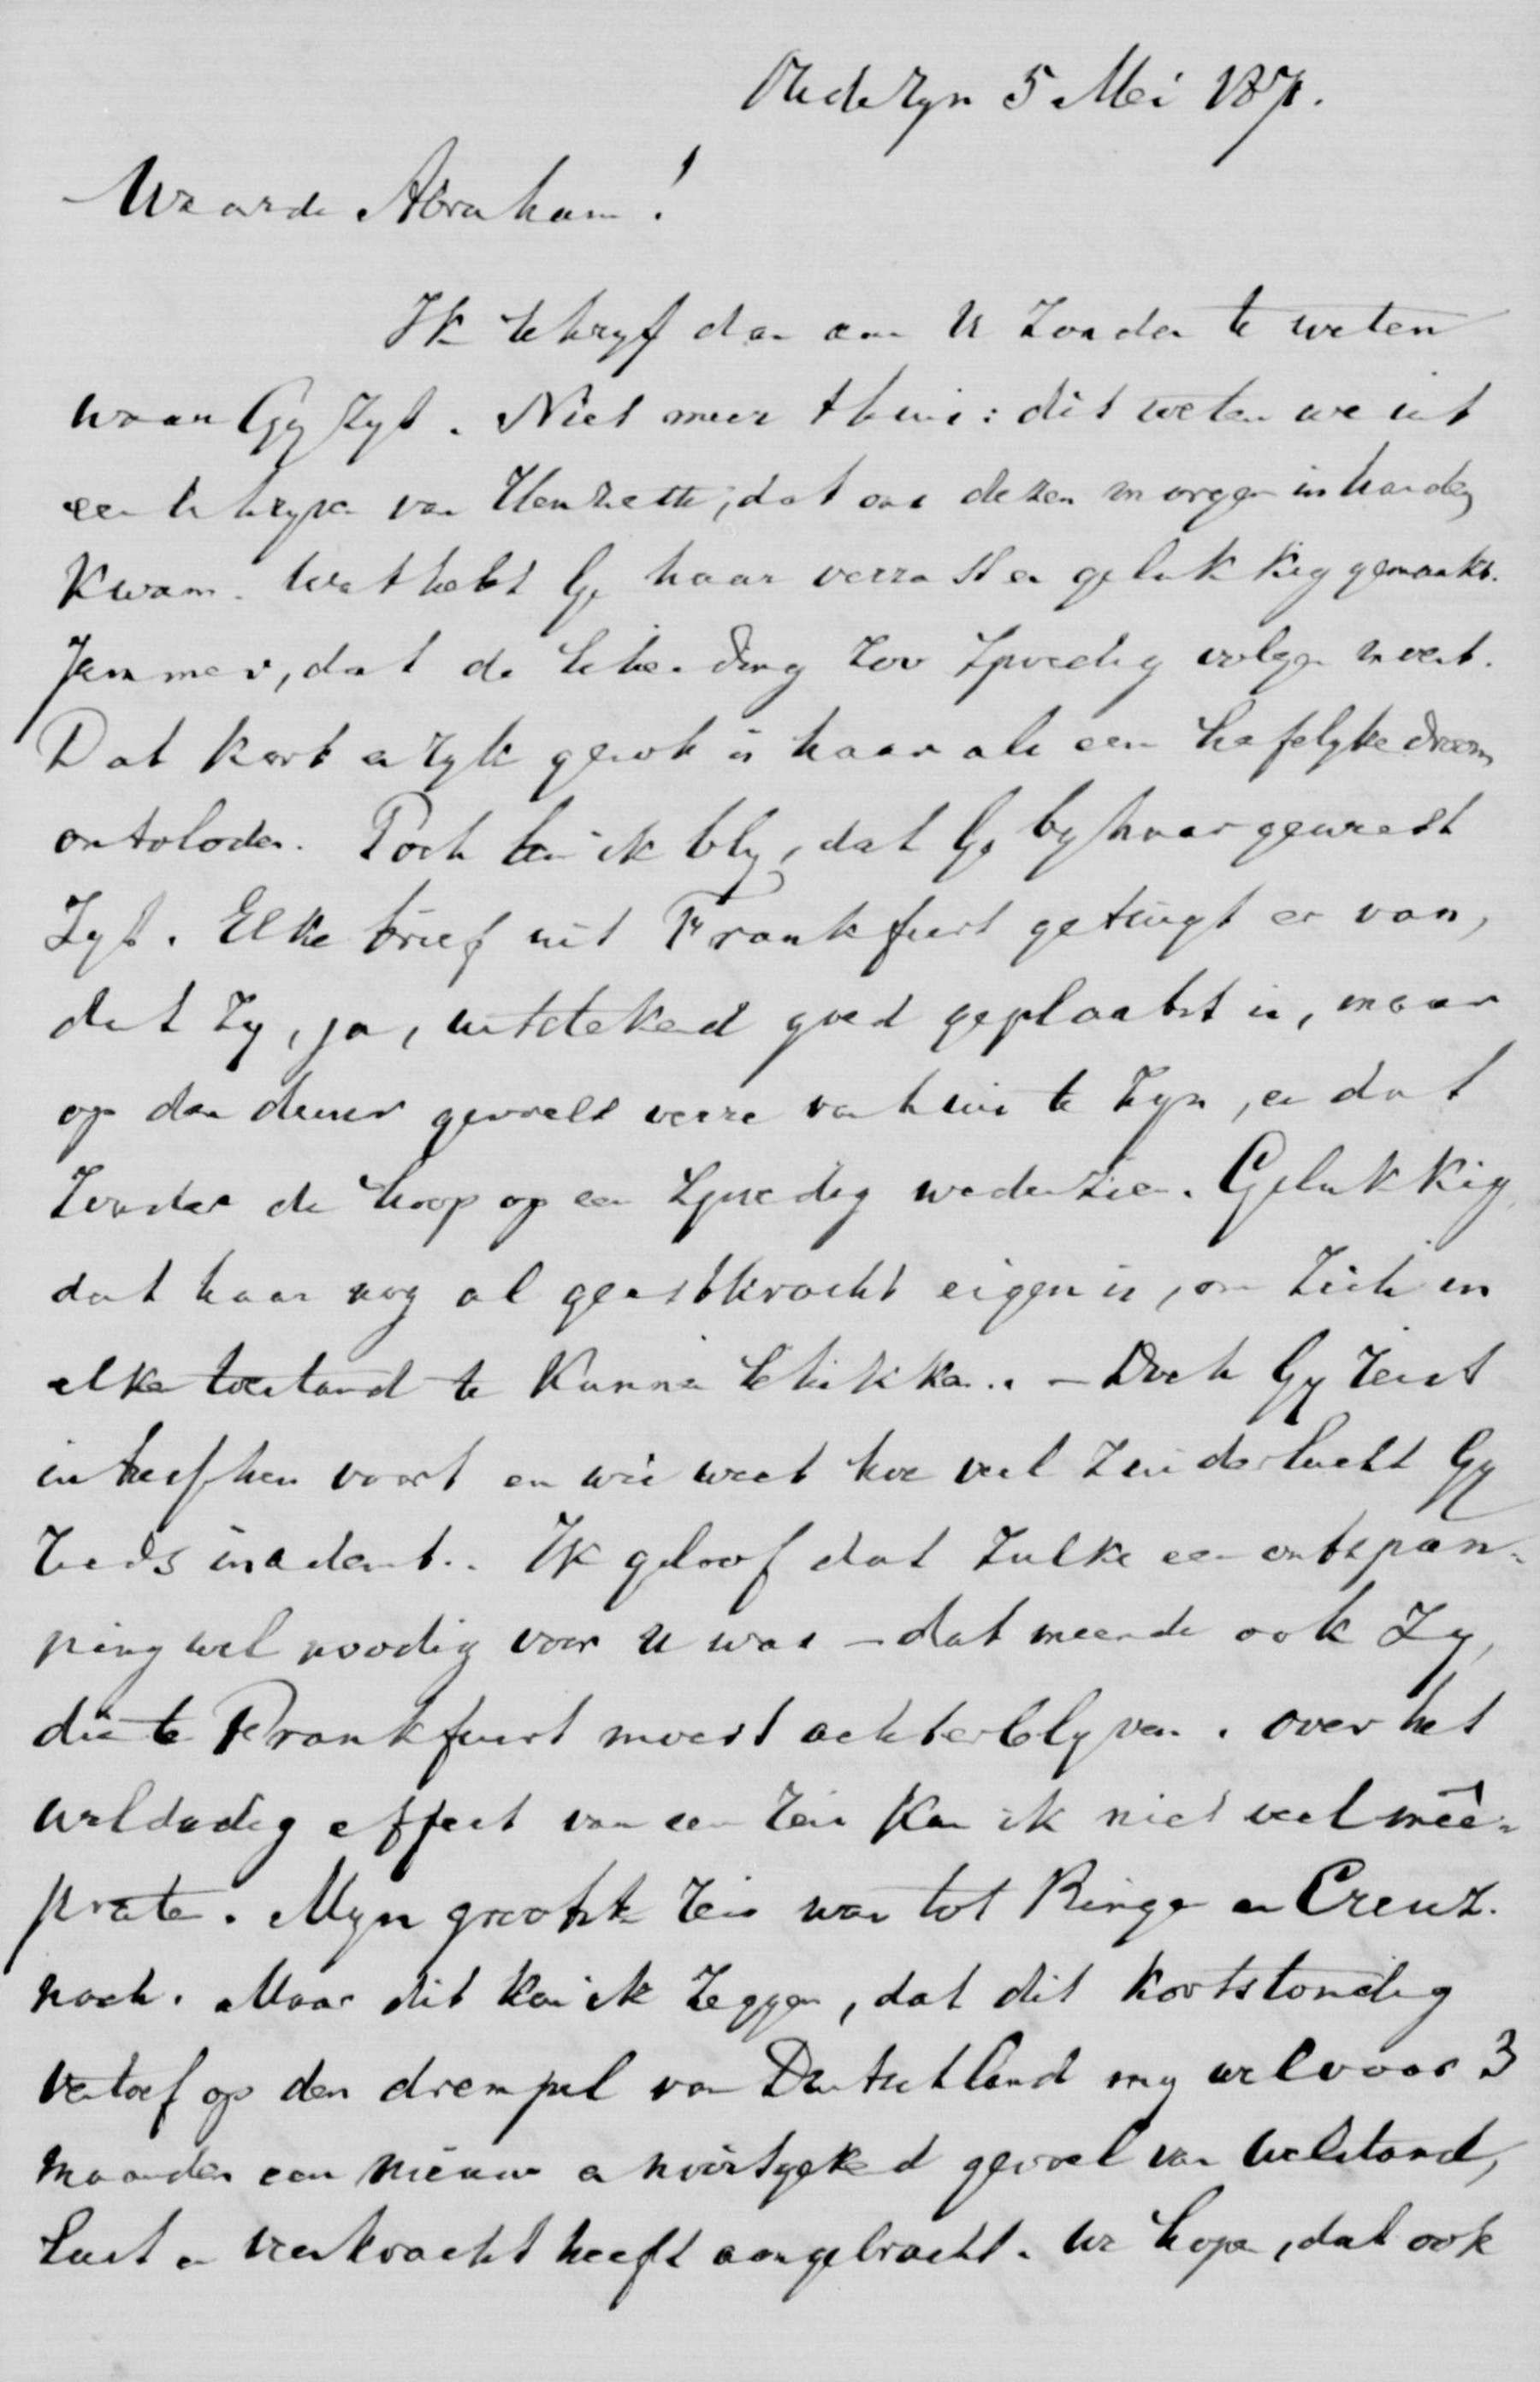 5 Mei 187.
Waarde Abraham!
Ik schryf dan aan U zonder te weten
waar Gy zyt. Niet meer thuis: dit weten we uit
een schryven van Henriette, dat ons dezen morgen in handen
kwam. Wat hebt Gy haar verrast en gelukkig gemaakt.
Jammer, dat de scheiding zoo spoedig volgen moest.
Dat kort en ryk genot is haar als een liefelyke droom
ontvloden. Toch ben ik bly, dat Gy by haar geweest
zyt. Elke brief uit Frankfurt getuigt er van,
dat zy, ja, uitstekend goed geplaatst is, maar
op den duur gevoelt verre van huis te zyn, en dat
zonder de hoop op een spoedig wederzien. Gelukkig
dat haar nog al geestkracht eigen is, om zich in
elken toestand te kunnen schikken. — Doch Gy reist
intusschen voort en wie weet hoe veel zuiderlucht Gy
reeds inademt. Ik geloof dat zulke een ontspan-
ning wel noodig voor U was — dat meende ook zy,
die te Frankfurt moest achterblyven. Over het
weldadig effect van een reis kan ik niet veel mêe-
praten. Myn grootste reis was tot Bingen en Creuz-
nach. Maar dit kan ik zeggen, dat dit kortstondig
vertoef op den drempel van Duitschland my wel voor 3
maanden een nieuw en gevoel van welstand,
lust en werkkracht heeft aangebracht. We hopen, dat ook